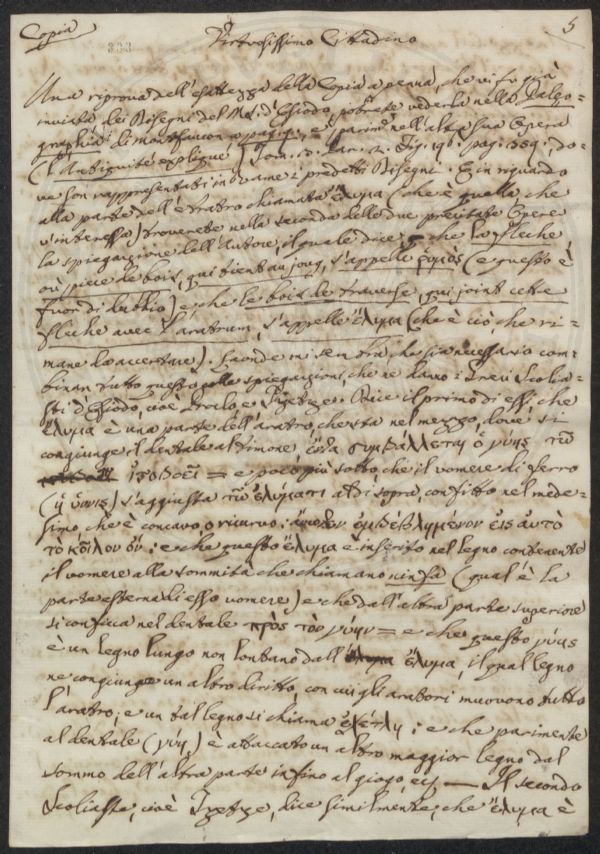 Copia
5
333
Virtuosissimo Cittadino
Una riprova dell'esattezza della Copia a penna, che vi fu già
inviata dei Disegni del Ms. d'Esiodo, potrete vederla nella Paleo-
graphia di Montfaucon a pag. 9., e parim. nell'altra sua Opera
(l'Antiquité expliqué) Tom. 3. Par. 2. Fig. 191. pag. 359., do-
ve son rappresentati in rame i predetti Disegni. Ed in riguardo
alla parte dell'aratro chiamata ἔλυμα (che è quella che
v'interessa) troverete nella seconda delle due precitate Opere
la spiegazione dell'Autore, il quale dice che la fleche
où piece de bois, qui tient au joug, s'appelle ῥυμὸς (e questo è
fuor di dubbio) e che le bois de traverse, qui joint cette
fleche avec l'aratrum, s'appelle ἔλυμα (che è ciò che ri-
mane da accertare). Laonde mi sembra, che sia necessario com-
binar tutto questo colle spiegazioni, che ne danno i Greci Scolia-
sti d'Esiodo, cioè Proclo e Tzetze. Dice il primo di essi, che
ἔλυμα è una parte dell'aratro, che sta nel mezzo, dove si
congiunge il dentale al timone, ἔνθα συμβάλλεται ὁ γύης τῷ
ἱστοβοεῖ = e poco più sotto che il vomere di ferro
(ἡ ὕννις) s'aggiusta τῷ ἐλύματι al di sopra, confitto nel mede-
simo che è concavo, o ricurvo: ἐμβεβλημένον εἰς αὐτὸ
τὸ κοῖλον ὄν: e che questo ἔλυμα è inserito nel legno contenente
il vomere alla sommità che chiamano ninfa (qual'è la
parte esterna di esso vomere) e che dall'altra parte superiore
si conficca nel dentale πρὸς τὸν γύην = e che questo γύης
è un legno lungo non lontano dall' ἔλυμα, il qual legno
ne congiunge un altro diritto, con cui gli aratori muovono tutto
l'aratro; e un tal legno si chiama ἐχέτλη: e che parimente
al dentale (γύῃ) è attaccato un altro maggior legno dal
sommo dell'altra parte infino al giogo, ec. — Il secondo
Scoliaste, cioè Tzetze, dice similmente, che ἔλυμα è